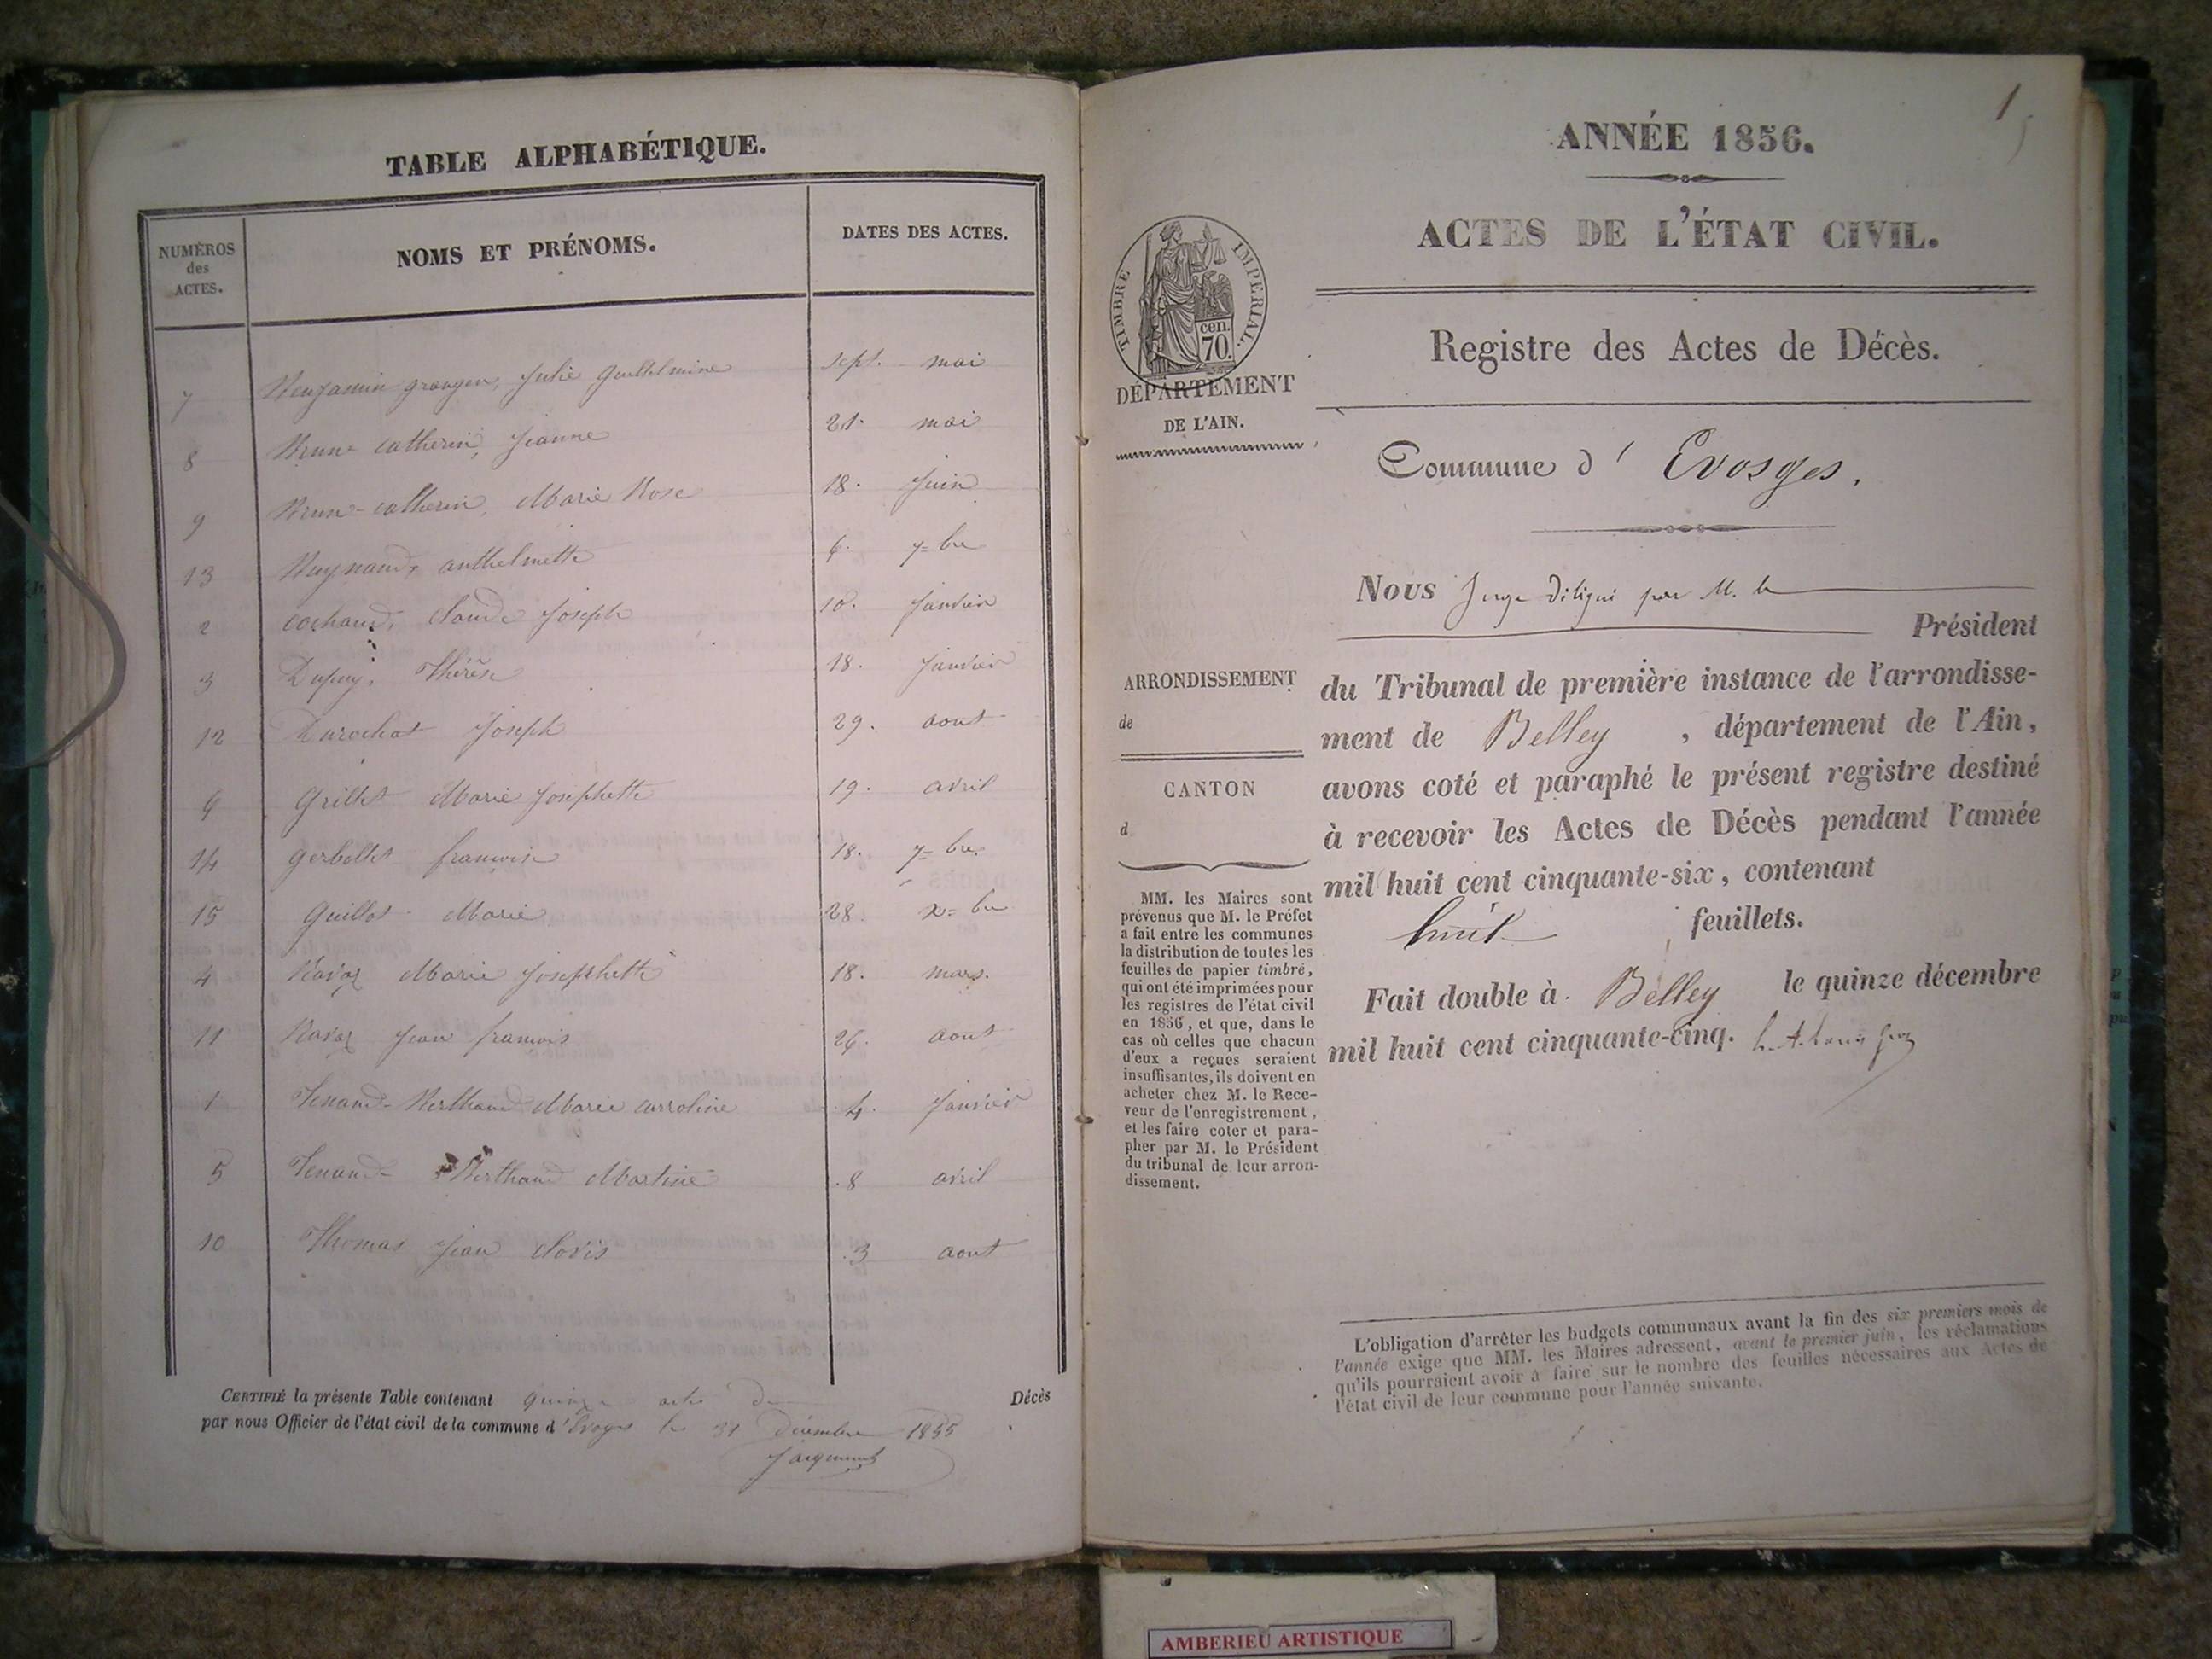 TABLE ALPHABÉTIQUE.
NUMÉROS
des
ACTES.
NOMS ET PRÉNOMS.
DATES DES ACTES.
7 Benjamin Julie sept. mai
8 Brun catherin, Jeanne 21. mai
9 Brun-catherin, Marie Rose 18. Juin
13 anthelmette 6. 7=bre
2 cochaud, claude Joseph 10. Janvier
3 Dupuy, Thérèse 18. Janvier
12 Durochat Joseph 29. aout
6 Grillet Marie Josephette 19. avril
14 Gerbellet françoise 18. 7=bre
15 Guillot Marie 28. x=bre
4 Ravaz Marie Josephette 18. mars.
11 Ravaz Jean francois 26. aout
1 Tenand-Berthand Marie carroline 4. Janvier
5 Tenand-Berthand Martine 8 avril
10 Thomas Jean clovis 3 aout
CERTIFIÉ la présente Table contenant quinze actes de Décès
par nous Officier de l'état civil de la commune d'Evoges le 31 Décembre 1855
Jacquemet
1
ANNÉE 1856.
ACTES DE L'ÉTAT CIVIL.
TIMBRE IMPÉRIAL.
cen.
70.
DÉPARTEMENT
DE L'AIN.
Registre des Actes de Décès.
Commune d' Evosges.
Nous Juge délégué par M. le
Président
ARRONDISSEMENT
de
CANTON
d
du Tribunal de première instance de l'arrondisse-
ment de Belley, département de l'Ain,
avons coté et paraphé le présent registre destiné
à recevoir les Actes de Décès pendant l'année
mil huit cent cinquante-six, contenant
huit feuillets.
Fait double à Belley le quinze décembre
mil huit cent cinquante-cinq.
MM. les Maires sont
prévenus que M. le Préfet
a fait entre les communes
la distribution de toutes les
feuilles de papier timbré,
qui ont été imprimées pour
les registres de l'état civil
en 1856, et que, dans le
cas où celles que chacun
d'eux a reçues seraient
insuffisantes, ils doivent en
acheter chez M. le Rece-
veur de l'enregistrement,
et les faire coter et para-
pher par M. le Président
du tribunal de leur arron-
dissement.
L'obligation d'arrêter les budgets communaux avant la fin des six premiers mois de
l'année exige que MM. les Maires adressent, avant le premier juin, les réclamations
qu'ils pourraient avoir à faire sur le nombre des feuilles nécessaires aux Actes de
l'état civil de leur commune pour l'année suivante.
AMBERIEU ARTISTIQUE